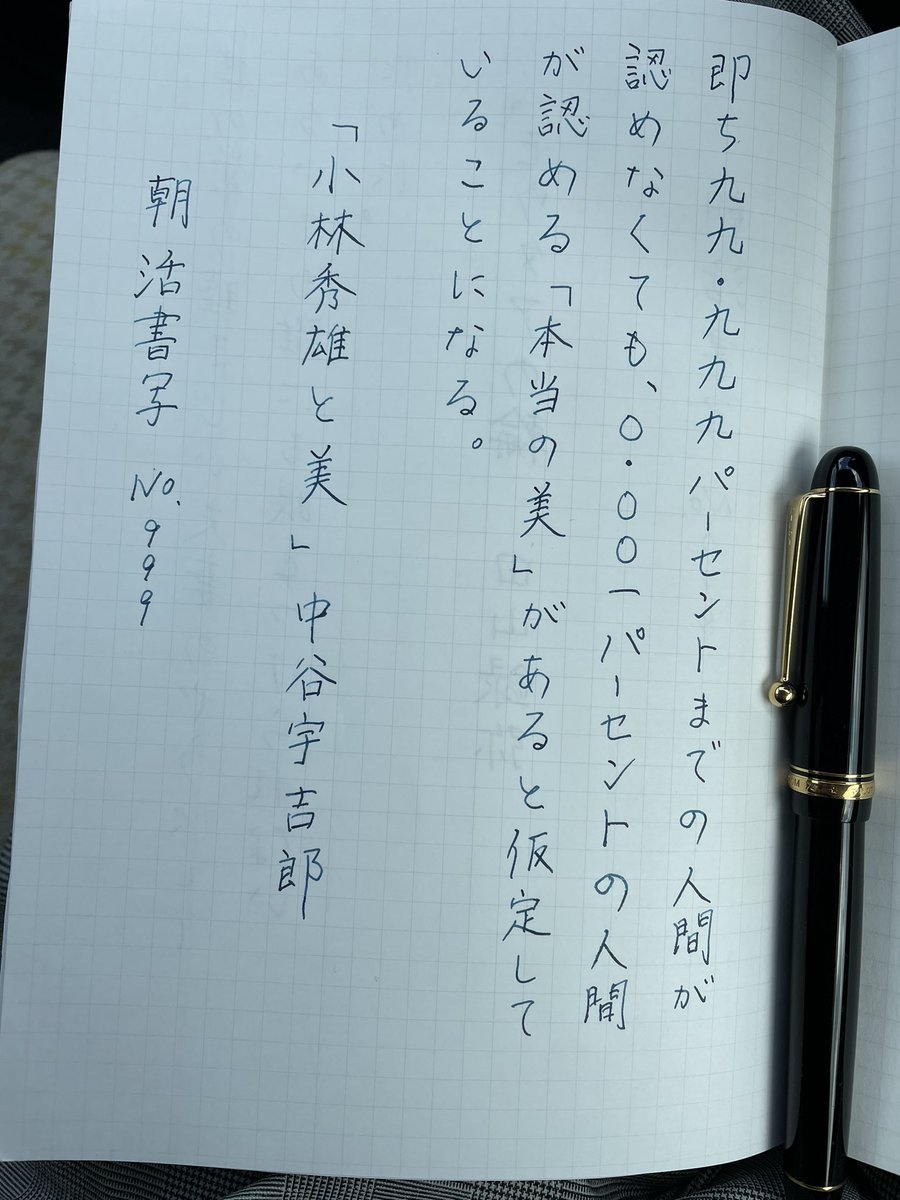 即ち九九・九九九パーセントまでの人間が
認めなくても、〇・〇〇一パーセントの人間
が認める「本当の美」があると仮定して
いることになる。
「小林秀雄と美」中谷宇吉郎
朝活書写 No.999